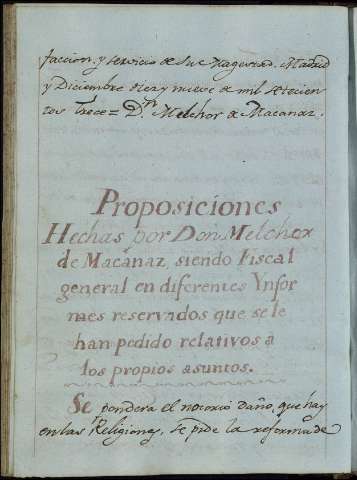 faccion, y servicio de Su Magestad. Madrid
y Diciembre diez y nueve de mil setecien
tos trece = Dn Melchor de Macanaz.
Proposiciones
Hechas por Don Melchor
de Macanaz, siendo Fiscal
general en diferentes Ynfor
mes reservados que se le
han pedido relativos a
los propios asuntos.
Se pondera el notorio daño, que hay
en las Religiones, se pide la reforma de